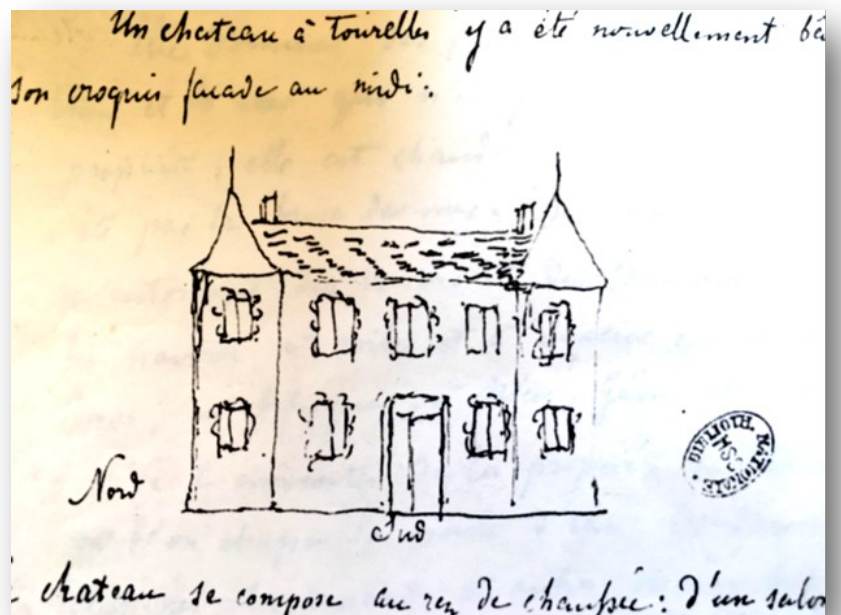 Un chateau à Tourelles y a été nouvellement bâ
son croquis facade au midi:
Nord
Sud
BIBLIOTH. NATIONALE
MSS
chateau se compose au rez de chaussée: d'un salon